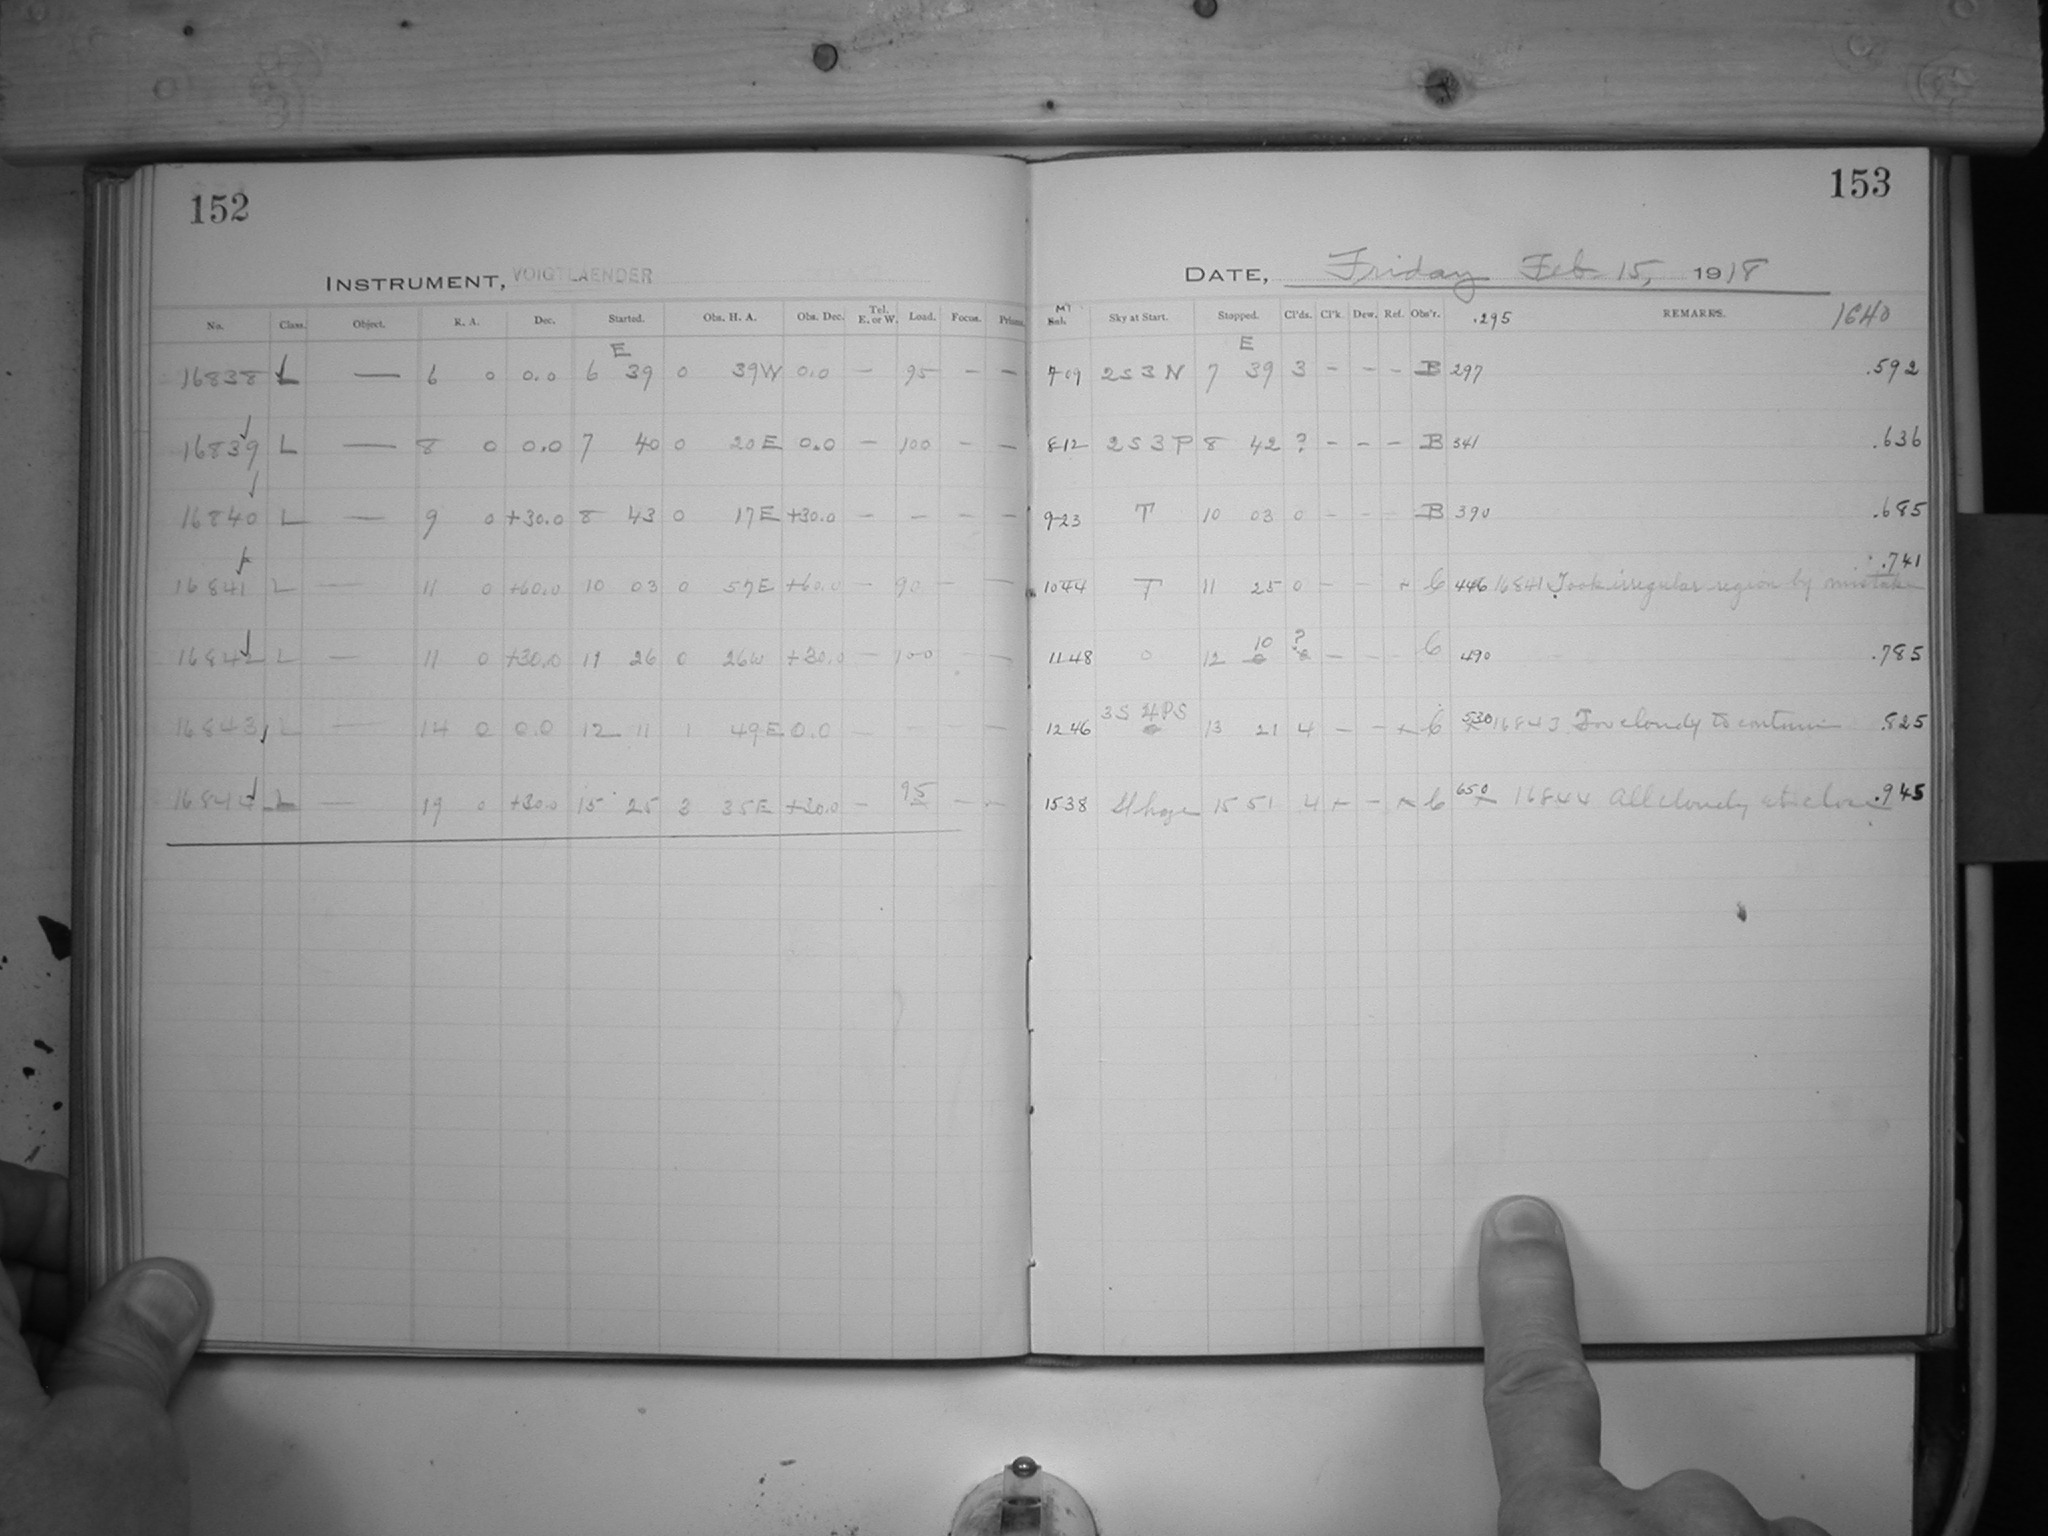 152
INSTRUMENT, VOIGTLAENDER
No. Class. Object. R. A. Dec. Started. Obs. H. A. Obs. Dec. Tel. E. or W. Load. Focus. Prisms.
E
16838 L — 6 0 0.0 6 39 0 39W 0.0 — 95 — —
16839 L — 8 0 0.0 7 40 0 20E 0.0 — 100 — —
16840 L — 9 0 +30.0 8 43 0 17E +30.0 — — — —
16841 L — 11 0 +60.0 10 03 0 57E +60.0 — 90 — —
16842 L — 11 0 +30.0 11 26 0 26W +30.0 — 100 — —
16843 L — 14 0 0.0 12 11 1 49E 0.0 — — — —
16844 L — 19 0 +30.0 15 25 3 35E +30.0 — 95 — —
153
DATE, Friday Feb 15, 1918
MT Sky at Start. Stopped. Cl'ds. Cl'k. Dew. Ref. Obs'r. .295 REMARKS. 1640
E
709 2S3N 7 39 3 - - - B 297 .592
812 2S3P 8 42 ? - - - B 341 .636
923 T 10 03 0 - - B 390 .685
1044 T 11 25 0 - - 6 446 16841 Took irregular region by mistake .741
1148 0 12 10 ? — - - 6 490 .785
1246 3S 4PS 13 21 4 — - 6 530 16843 Too cloudy to continue .825
1538 15 51 4 - 6 650 16844 All cloudy at close .945